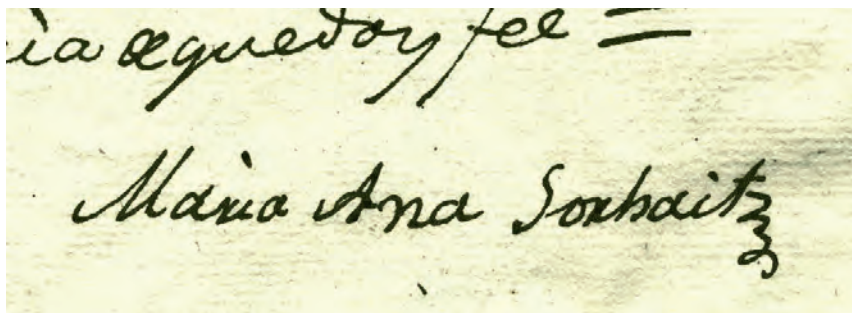 ia deque doy fee =
Maria Ana Sorhaitz